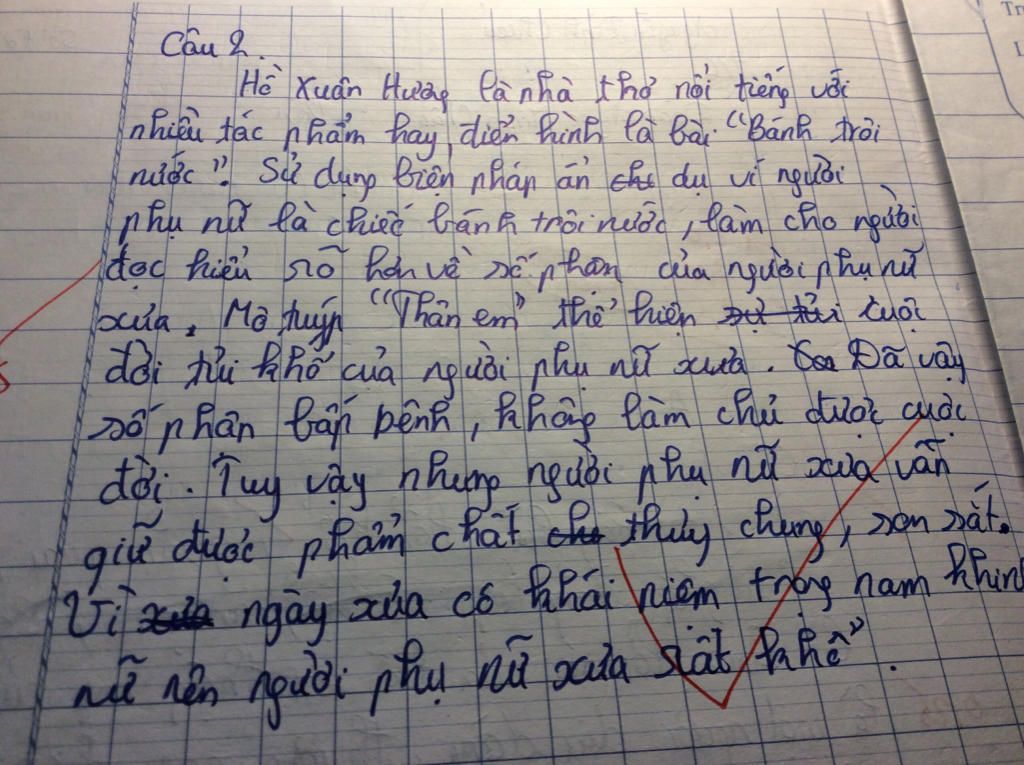 Câu 2.
Hồ Xuân Hương là nhà thơ nổi tiếng với
nhiều tác phẩm hay, điển hình là bài "Bánh trôi
nước". Sử dụng biện pháp ẩn dụ ví người
phụ nữ là chiếc bánh trôi nước, làm cho người
đọc hiểu rõ hơn về số phận của người phụ nữ
xưa. Mô tuýp "Thân em" thể hiện cuộc
đời tủi khổ của người phụ nữ xưa. Đã vậy
số phận bấp bênh, không làm chủ được cuộc
đời. Tuy vậy nhưng người phụ nữ xưa vẫn
giữ được phẩm chất thủy chung, son sắt.
Vì ngày xưa có khái niệm trọng nam khinh
nữ nên người phụ nữ xưa rất khổ".
Tr